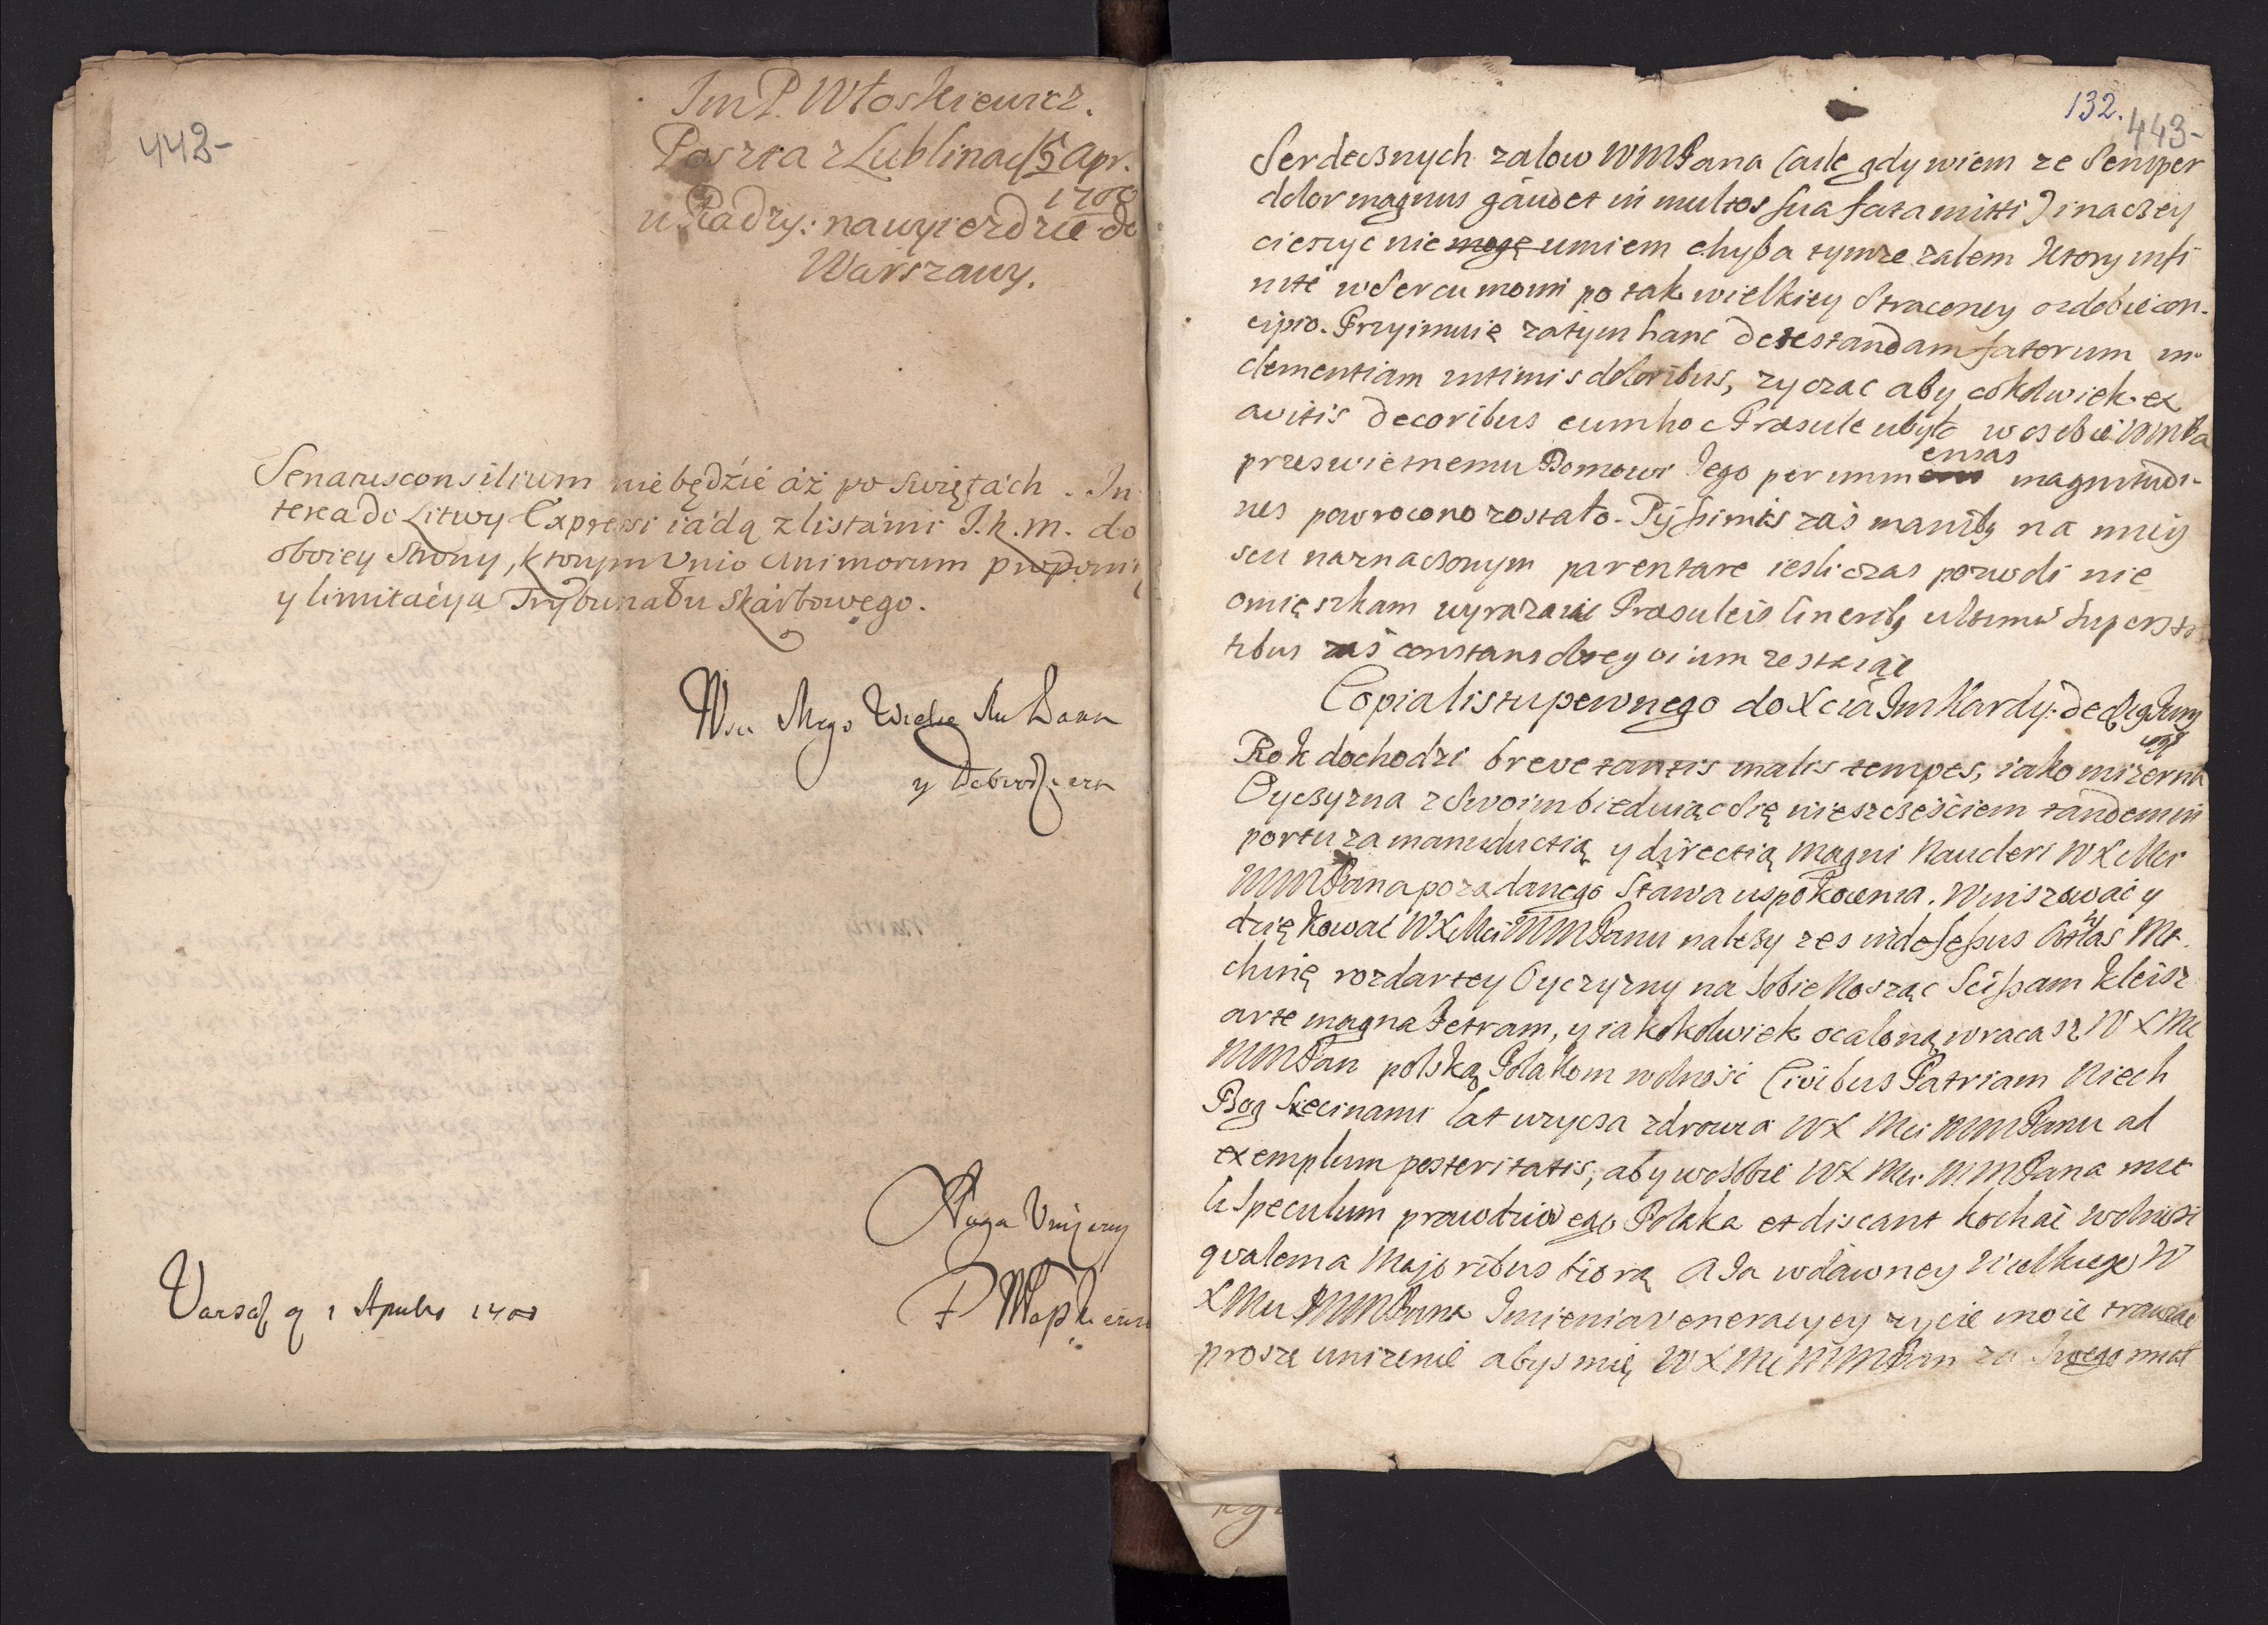 442-
Im P. Włoskiewicz.
Poszta z Lublina d 5 Apr.
1700
u Radzy: na wyiezdzie do
Warszawy.
Senatusconsilium nie będzie áż po swiętách. In
terea do Litwy Expressi iádą z listámi J. K. M. do
oboiey strony, ktorym Unio Animorum
y limitácya Trybunału Skárbowego.
Wm Mego Wielce Mu Pana
y Dobrodzieia
Sługa Uniżony
P Włoskiewicz
Varsa 1 Aprilis 1700
132.
443-
Serdecznych zalow WMPana (ale gdy wiem ze Semper
dolor magnus gaudet in multos sua fata mitti) inaczey
cieszyc nie mogę umiem chyba tymze zalem ktory infi
nite w Sercu moim po tak wielkiey straconey ozdobie con-
cipio. Przyimuię zatym hanc detestandam fatorum in-
clementiam intimis doloribus, zycząc aby cokolwiek ex
avitis decoribus cum hoc Præsule ubyło w osobie WMPa
przeswietnemu Domowi Iego per imm
ensas
magnitudi-
nes powrocono zostało. Pijssimis zaś manibq na miey
scu naznaczonym parentare iesli czas pozwoli nie
omięszkam wyrazaiąc Præsuleis Cineribq ultima supersti
tibus zaś constans obsequium zostaiąc
Copia listu pewnego do Xcia Im Kardy: de
Rok dochodzi breve tantis malis tempus, iako mizerna
Oyczyzna z Swoim bieduiąc się nieszczęściem tandem in
portu za manuductią y directią magni Naucleri WX Mci
MMPana pożądanego stawa uspokoienia. Winszować y
dziękować WXMci MMPanu nalezy zes indefessus Atlas Ma
chinę rozdartey Oyczyzny na sobie nosząc Scissam kleisz
arte magna Petram, y iakokolwiek ocaloną wracasz WXMc
MMPan polską Polakom wolność Civibus Patriam Niech
Bog Sſecinami lat uzycza zdrowia WX Mci MMPanu ad
exemplum posteritatis, aby w osobie WX Mci MMPana mie
li Speculum prawdziwego Polaka et discant kochać wolność
qualem a Majoribus biorą A Ja w dawney Wielkiego W
XMci MMPana Imienia veneracyey zycie moie trawiąc
proszę unizenie abys mię WXMc MMPan za swego miał